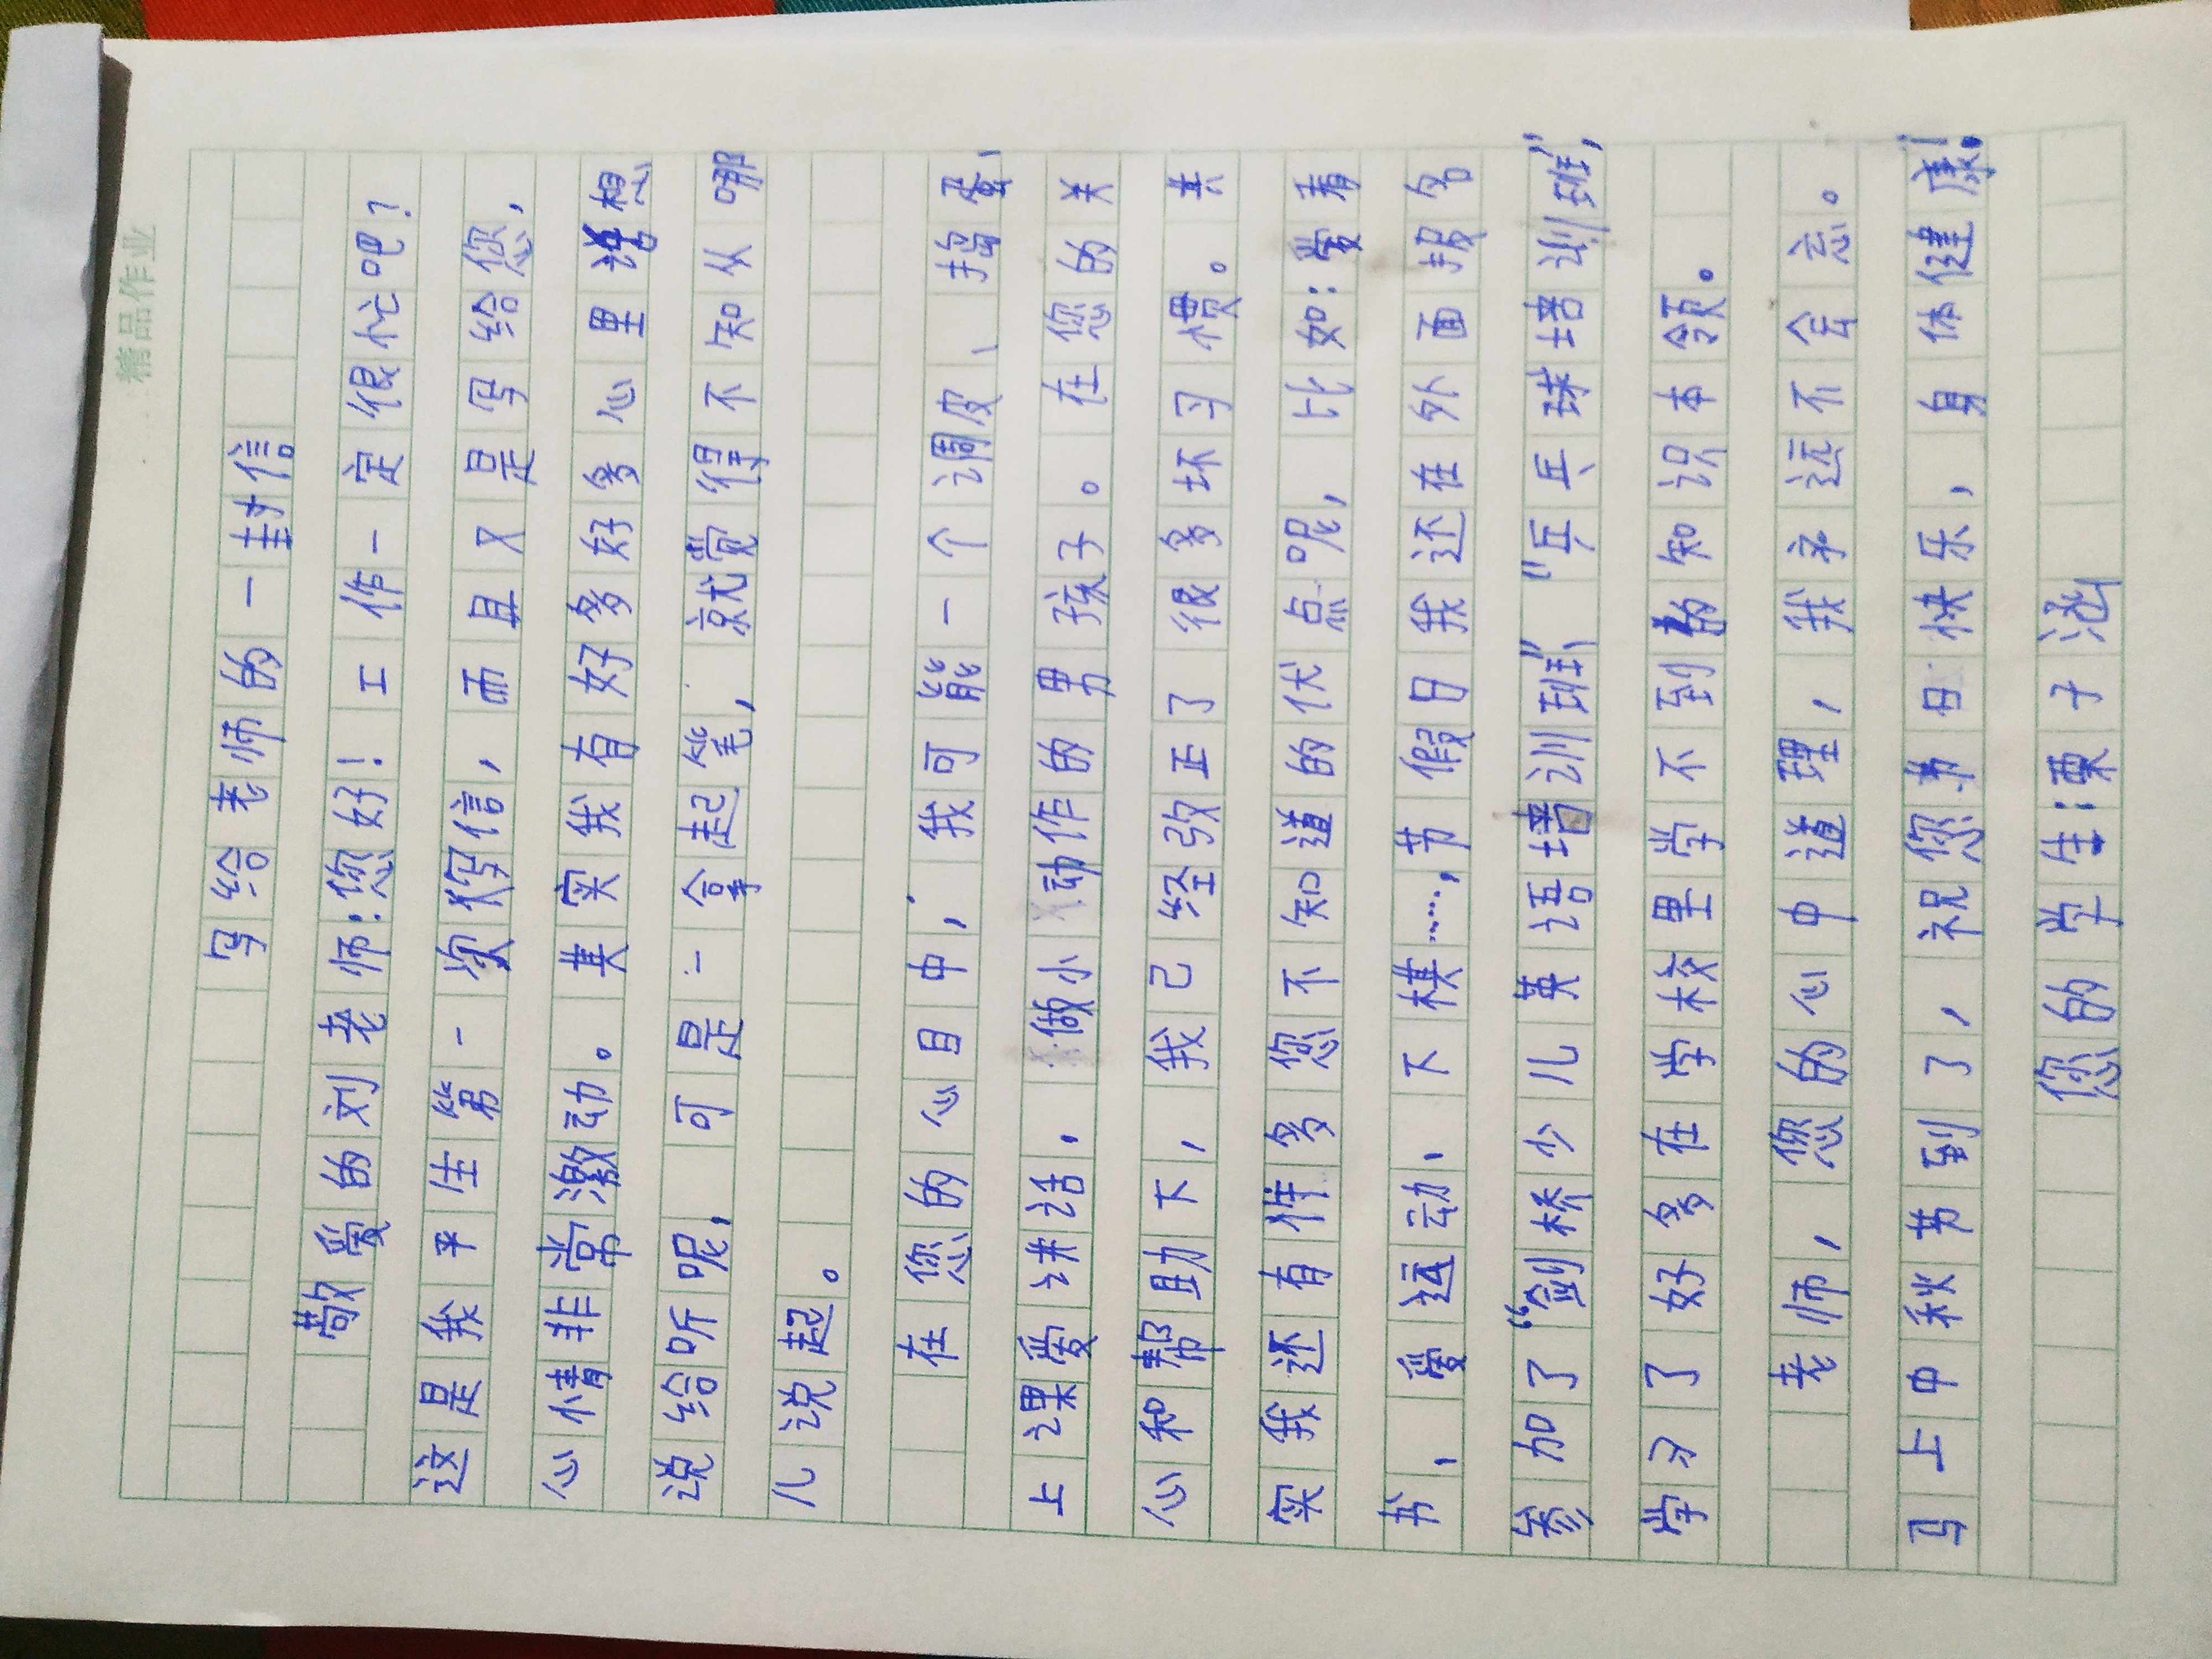 精品作业
写给老师的一封信
敬爱的刘老师:您好!工作一定很忙吧?
这是我平生第一次写信,而且又是写给您,
心情非常激动。其实我有好多好多心里话想
说给听呢,可是一拿起笔,就觉得不知从哪
儿说起。
在您的心目中,我可能一个调皮、捣蛋、
上课爱讲话,做小动作的男孩子。在您的关
心和帮助下,我已经改正了很多坏习惯。其
实我还有许多您不知道的优点呢,比如:爱看
书、爱运动、下棋……,节假日我还在外面报名
参加了“剑桥少儿英语培训班”“乒乓球培训班”,
学习了好多在学校里学不到的知识本领。
老师,您的心中道理,我永远不会忘。
马上中秋节到了,祝您节日快乐,身体健康!
您的学生:栗子涵